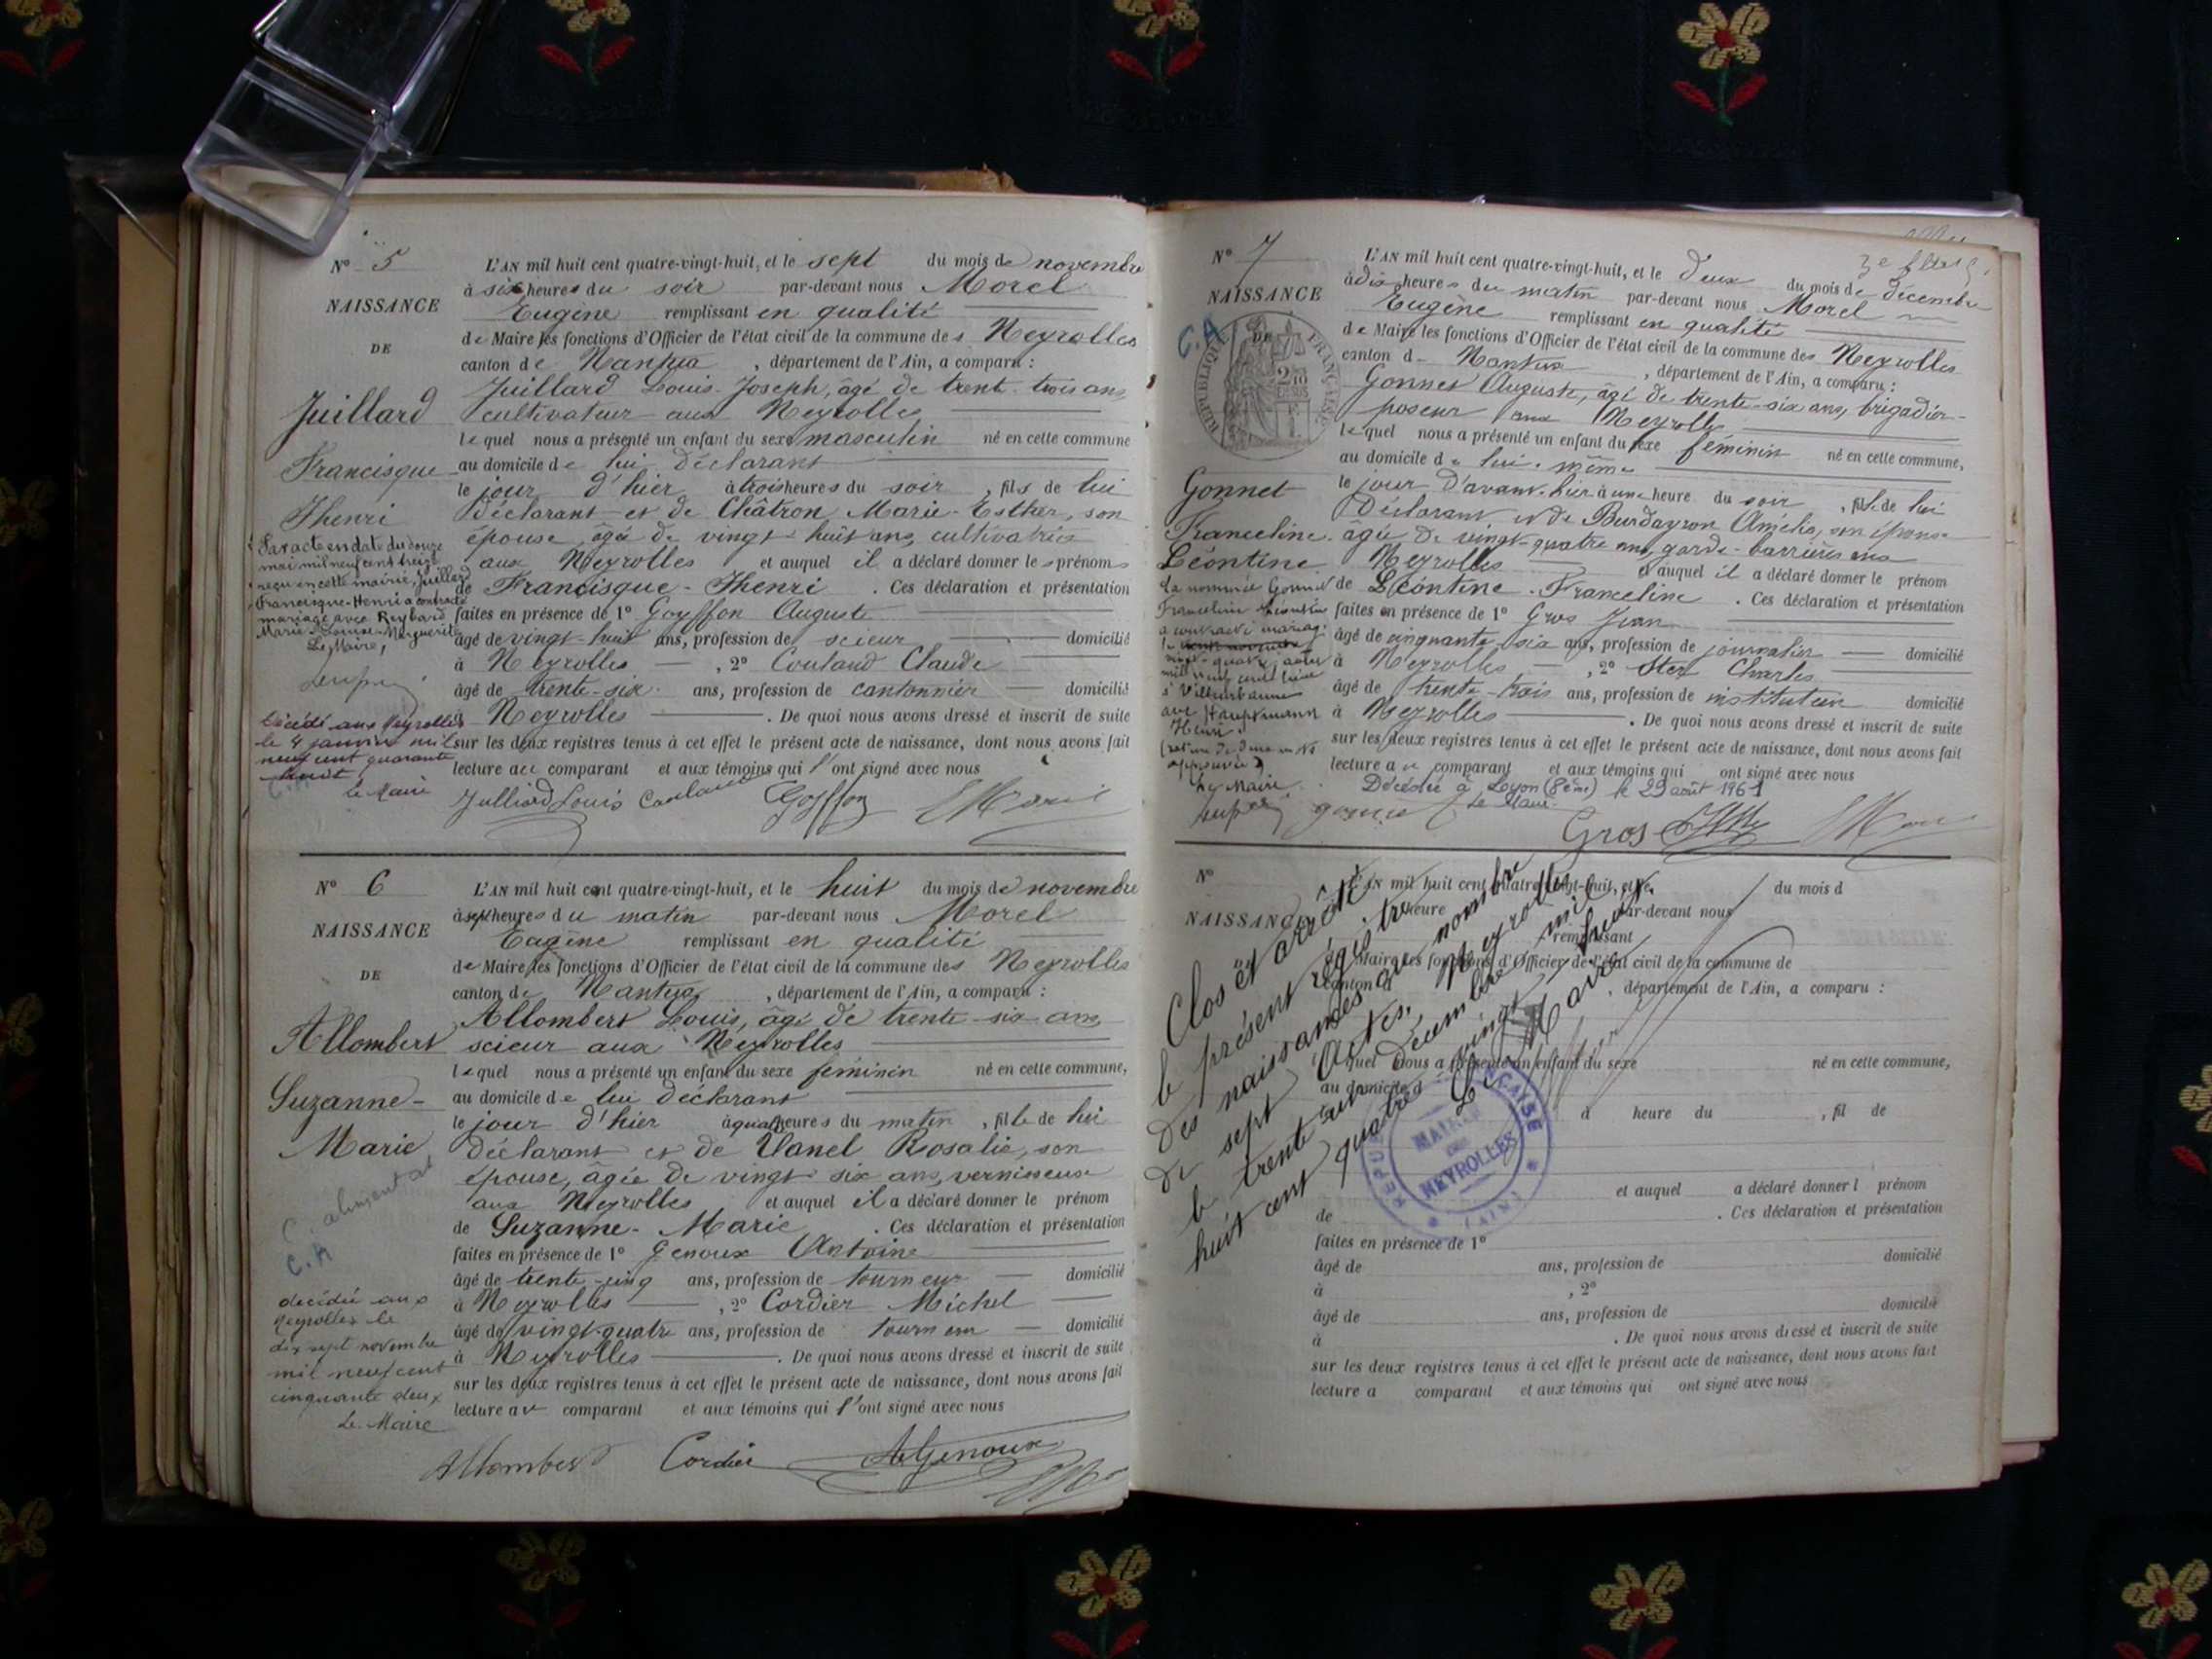 N° 5
NAISSANCE
DE
Juillard
Francisque
Henri
Par acte en date du douze
mai mil neuf cent treize
reçu en cette mairie, Juillard
Francisque-Henri a contracté
mariage avec Reybard
Marie-Louise-Marguerite
Le Maire,
Décédé aux Neyrolles
le 4 janvier mil
neuf cent quarante
huit
le Maire
L'AN mil huit cent quatre-vingt-huit, et le sept du mois de novembre
à six heures du soir par-devant nous Morel
Eugène remplissant en qualité
de Maire les fonctions d'Officier de l'état civil de la commune des Neyrolles
canton de Nantua, département de l'Ain, a comparu :
Juillard Louis-Joseph, âgé de trente-trois ans
cultivateur aux Neyrolles
lequel nous a présenté un enfant du sexe masculin né en cette commune
au domicile de lui déclarant
le jour d'hier à trois heures du soir, fils de lui
déclarant et de Châtron Marie-Esther, son
épouse, âgée de vingt-huit ans, cultivatrice
aux Neyrolles et auquel il a déclaré donner les prénoms
de Francisque-Henri. Ces déclaration et présentation
faites en présence de 1° Goyffon Auguste
âgé de vingt-huit ans, profession de scieur domicilié
à Neyrolles, 2° Coutaud Claude
âgé de trente-six ans, profession de cantonnier domicilié
à Neyrolles. De quoi nous avons dressé et inscrit de suite
sur les deux registres tenus à cet effet le présent acte de naissance, dont nous avons fait
lecture au comparant et aux témoins qui l'ont signé avec nous
Julliard Louis Coutaud Goyffon EMorel
N° 6
NAISSANCE
DE
Allombert
Suzanne-
Marie
C. alimentat
C.A
décédée aux
Neyrolles le
dix sept novembre
mil neuf cent
cinquante deux
Le Maire
L'AN mil huit cent quatre-vingt-huit, et le huit du mois de novembre
à sept heures du matin par-devant nous Morel
Eugène remplissant en qualité
de Maire les fonctions d'Officier de l'état civil de la commune des Neyrolles
canton de Nantua, département de l'Ain, a comparu :
Allombert Louis, âgé de trente-six ans,
scieur aux Neyrolles
lequel nous a présenté un enfant du sexe féminin né en cette commune,
au domicile de lui déclarant
le jour d'hier à quatre heures du matin, fille de lui
déclarant et de Vanel Rosalie, son
épouse, âgée de vingt-six ans, vernisseuse
aux Neyrolles et auquel il a déclaré donner le prénom
de Suzanne-Marie. Ces déclaration et présentation
faites en présence de 1° Genoux Antoine
âgé de trente-cinq ans, profession de tourneur domicilié
à Neyrolles, 2° Cordier Michel
âgé de vingt-quatre ans, profession de tourneur domicilié
à Neyrolles. De quoi nous avons dressé et inscrit de suite
sur les deux registres tenus à cet effet le présent acte de naissance, dont nous avons fait
lecture au comparant et aux témoins qui l'ont signé avec nous
Allombert Cordier AGenoux
N° 7
NAISSANCE
DE
C.A
RÉPUBLIQUE FRANÇAISE
Gonnet
Franceline
Léontine
La nommée Gonnet
Franceline Léontine
a contracté mariage
à Villeurbanne
avec Hauptmann
Henri
Le Maire
3e feuille
L'AN mil huit cent quatre-vingt-huit, et le deux du mois de décembre
à dix heures du matin par-devant nous Morel
Eugène remplissant en qualité
de Maire les fonctions d'Officier de l'état civil de la commune des Neyrolles
canton de Nantua, département de l'Ain, a comparu :
Gonnet Auguste, âgé de trente-six ans, brigadier-
poseur aux Neyrolles
lequel nous a présenté un enfant du sexe féminin né en cette commune,
au domicile de lui-même
le jour d'avant-hier à une heure du soir, fille de lui
déclarant et de Burdayron Amélie, son épouse
âgée de vingt-quatre ans, garde-barrières aux
Neyrolles et auquel il a déclaré donner le prénom
de Léontine-Franceline. Ces déclaration et présentation
faites en présence de 1° Gros Jean
âgé de cinquante-six ans, profession de journalier domicilié
à Neyrolles, 2° Ster Charles
âgé de trente-trois ans, profession de instituteur domicilié
à Neyrolles. De quoi nous avons dressé et inscrit de suite
sur les deux registres tenus à cet effet le présent acte de naissance, dont nous avons fait
lecture au comparant et aux témoins qui ont signé avec nous
Décédée à Lyon (8ème) le 29 août 1961
Le Maire
gonnet Gros
N°
NAISSANCE
L'AN mil huit cent quatre-vingt-huit, et le du mois d
heure par-devant nous
remplissant
Maire les fonctions d'Officier de l'état civil de la commune de
canton d , département de l'Ain, a comparu :
quel nous a présenté un enfant du sexe né en cette commune,
au domicile d
à heure du , fil de
et auquel a déclaré donner l prénom
de . Ces déclaration et présentation
faites en présence de 1°
âgé de ans, profession de domicilié
à , 2°
âgé de ans, profession de domicilié
à . De quoi nous avons dressé et inscrit de suite
sur les deux registres tenus à cet effet le présent acte de naissance, dont nous avons fait
lecture a comparant et aux témoins qui ont signé avec nous
Clos et arrêté
le présent registre
des naissances au nombre
de sept Actes. Neyrolles
le trente un Décembre mil
huit cent quatre vingt huit
Le Maire
MAIRIE
DES
NEYROLLES
(AIN)